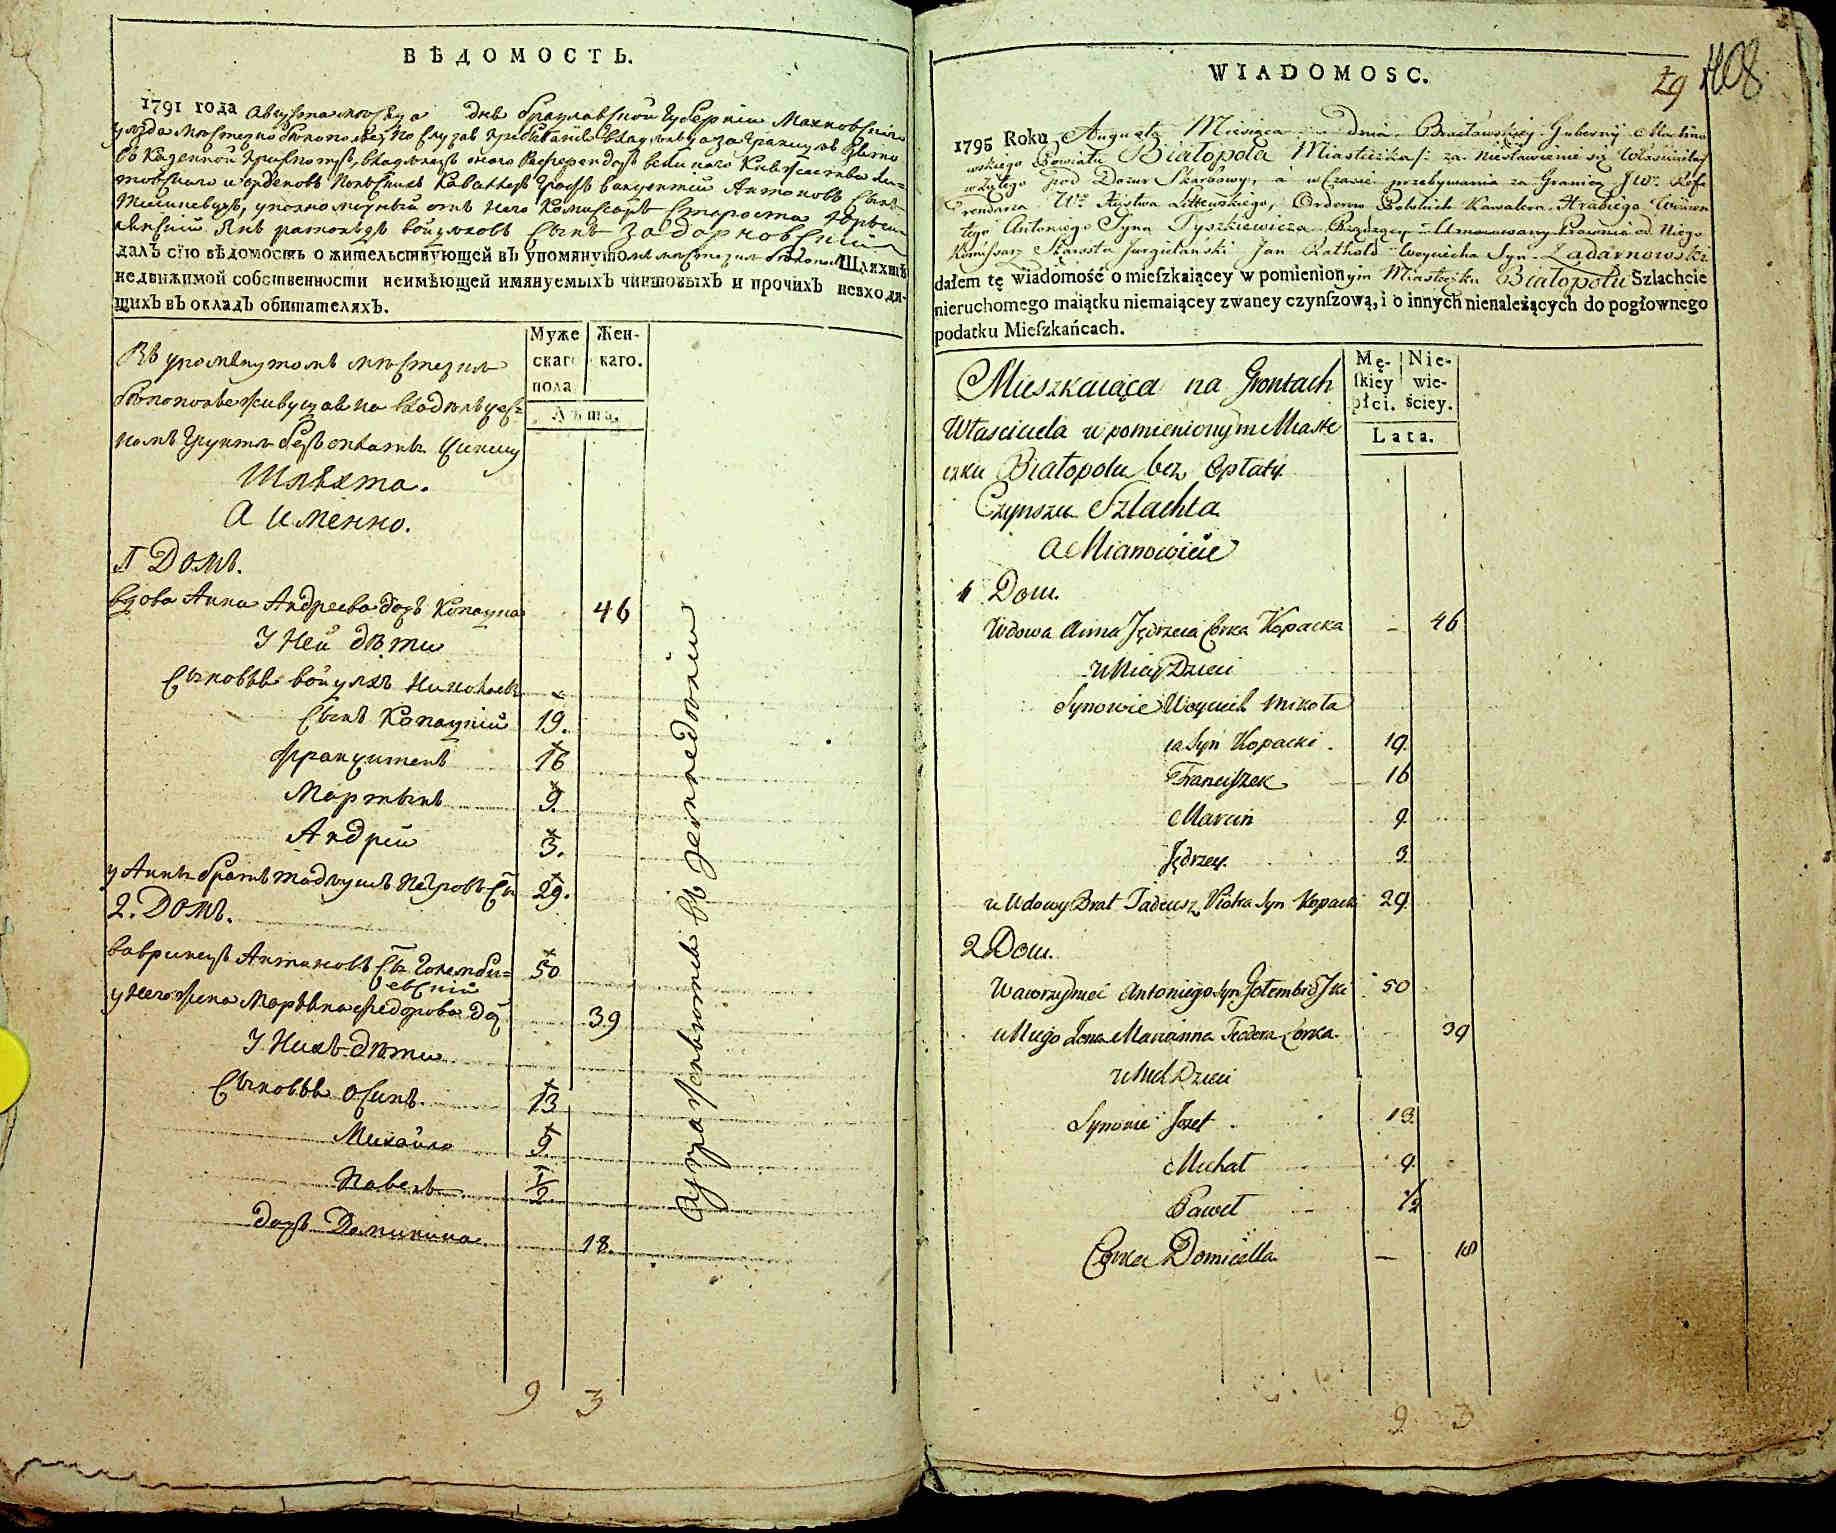 ВѢДОМОСТЬ.
1791 года Августа мѣсяца дня Брацлавской Губерніи Махновскаго
уѣзда мѣстечка Бѣлополья по случаю пребыванія владѣльца заграницею взято
въ казенной присмотръ, владѣлецъ оного Референдарь великаго Княжества Ли-
товскаго и орденовъ Польскихъ Кавалеръ Графъ викентій Антоновъ сынъ
Тишкевичь, уполномоченный отъ него Комисаръ Староста
Янъ войцѣховъ Сынъ Задарновскій
далъ сїю вѣдомость о жительствующей въ упомянутомъ мѣстечкѣ Бѣлопольѣ Шляхтѣ
недвижимой собственности неимѣющей имянуемыхъ чиншовыхъ и прочихъ невходя-
щихъ въ окладъ обитателяхъ.
Муже Жен-
скаго каго.
пола
Лѣта.
Въ упомянутомъ мѣстечкѣ
Бѣлопольѣ живущая на владѣльчес-
комъ Грунтѣ безъ оплаты Чиншу
Шляхта.
А именно.
1 Домъ.
вдова Анна Андреева дочь Копацка 46
У Ней дѣти
Сыновья войцѣхъ Николаевъ
Сынъ Копацкій 19.
Францишекъ 16
Мартынъ 9.
Андрій 3.
у Анны братъ тадеушъ Петровъ Сы 29.
2. Домъ.
вавринецъ Антоновъ Сы Голембі=
евскій 50
у Него жена Марьяна Федорова До 39
У Нихъ дѣти
Сыновья Осипъ. 13
Михайло 9.
Павелъ 1/2
дочь Доминика 18.
9 3
WIADOMOSC.
79 408
1795 Roku Augusta Miesiąca Dnia Bracławskiey Gubernij Machno
wskiego Powiatu Białopola Miasteczka /: za niestawienie się Właściciela
wziętego pod Dozur Skarbowy, a w Czasie przebywania za Granicą JW. Refe
rendarza W. Xięstwa Littewskiego, Orderow Polskich Kawalera Hrabiego Wincen
tego Antoniego Syna Tyszkiewicza Rządzący Umocowany Prawnie od Niego
Komissarz Starosta Jan Woyciecha Syn Zadarnowski
dałem tę wiadomość o mieſzkaiącey w pomienionym Miasteczku Białopolu Szlachcie
nieruchomego maiątku niemaiącey zwaney czynſzową, i o innych nienależących do pogłownego
podatku Mieſzkańcach.
Mę- Nie-
ſkiey wie-
płci. ściey.
Lata.
Mieszkaiąca na Grontach
Własciciela w pomienionym Miaste
czku Białopolu bez Opłaty
Czynszu Szlachta
a Mianowicie
1 Dom.
Wdowa Anna Jędrzeia Corka Kopacka – 46
u Niey Dzieci
Synowie Woyciech Mikoła
ia Syn Kopacki 19.
Franciszek 16
Marcin 9.
Jędrzey. 3.
u Wdowy Brat Tadeusz Piotra Syn Kopacki 29.
2 Dom.
Wawrzyniec Antoniego Syn Gołembioſki 50
u Niego Zona Marianna Teodora Corka. 39
u Nich Dzieci
Synowie Jozef 13.
Michał 9.
Paweł 1/2
Corka Domicella – 18
9. 3